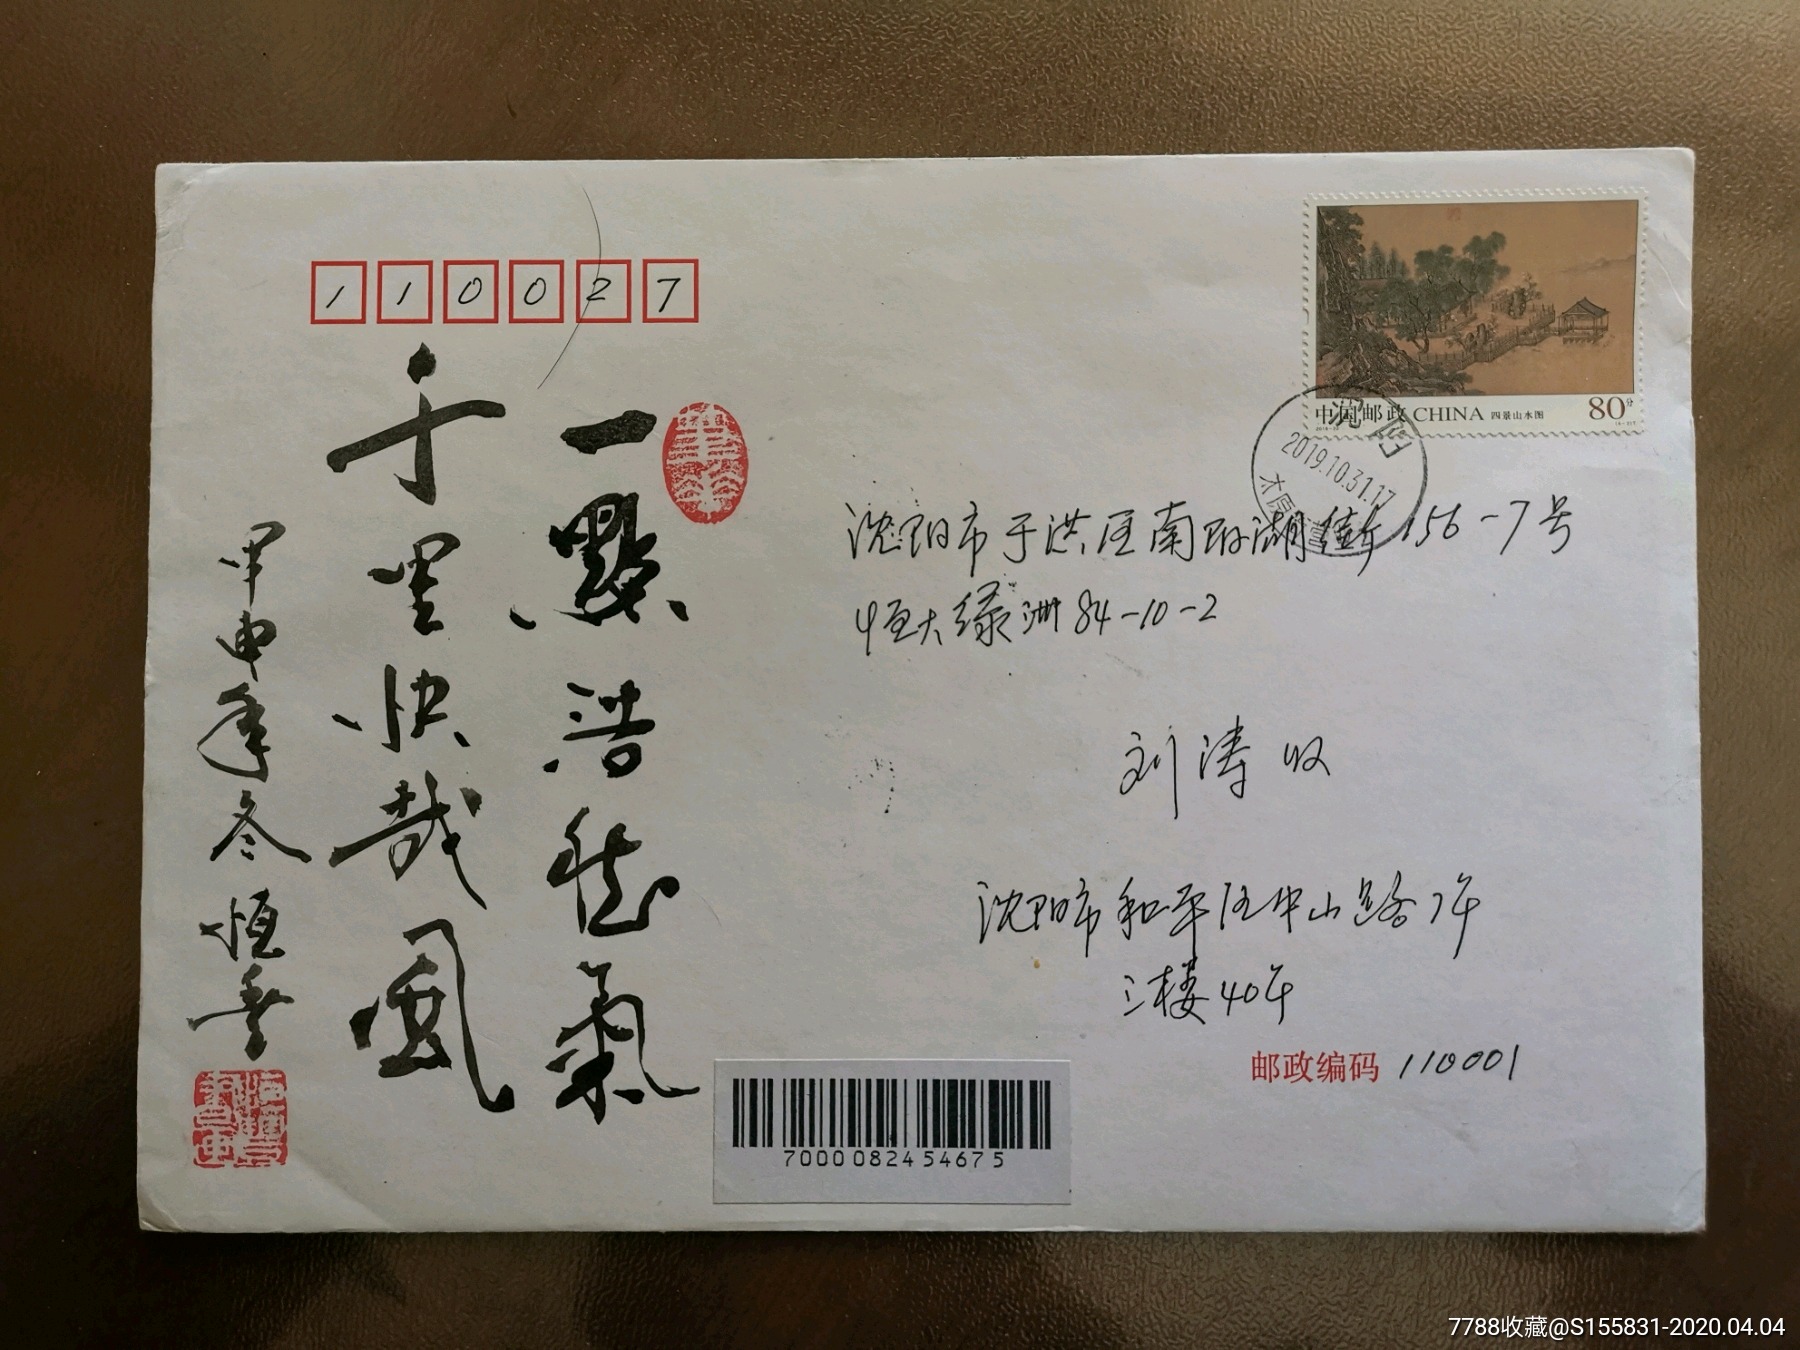 110027
中国邮政 CHINA 四景山水图 80分
沈阳
2019.10.31.17
一點浩然氣
千里快哉風
甲申年冬 恒
沈阳市于洪区南阳湖街156-7号
恒大绿洲84-10-2
刘涛 收
沈阳市和平区中山路7号
三楼40号
邮政编码 110001
7000082454675
7788收藏@S155831-2020.04.04